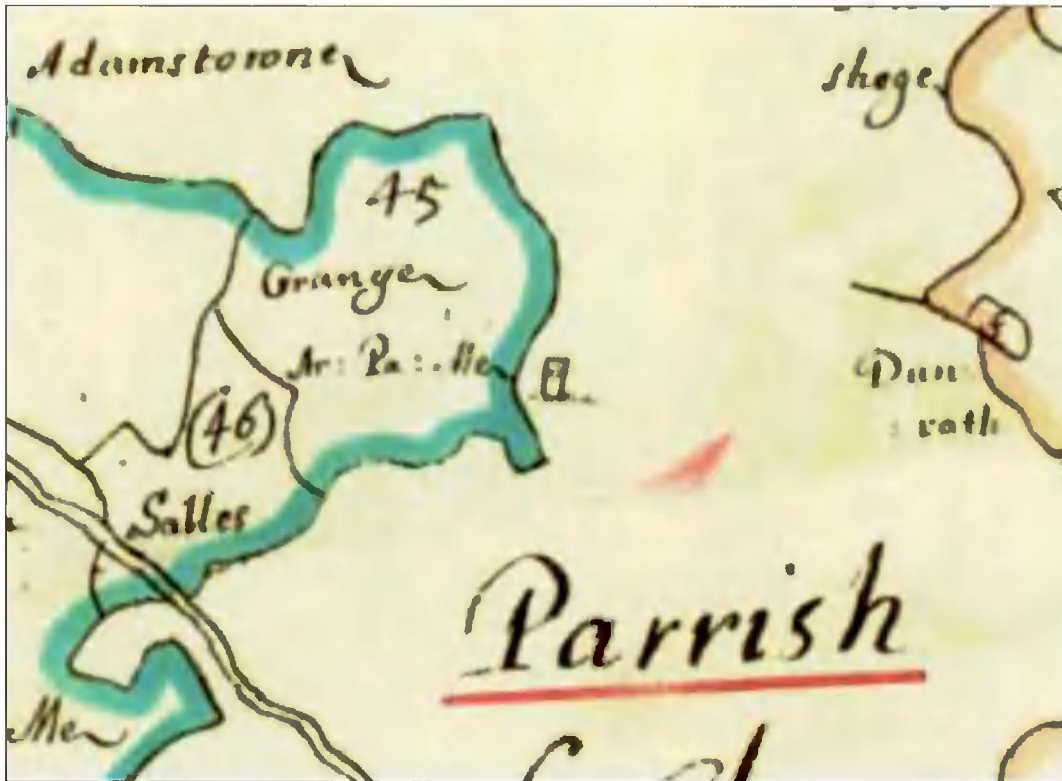 Adamstowne
shege
45
Grange
Ar: Pa: Me
5
Dun
: rath
(46)
Salles
Parrish
Me